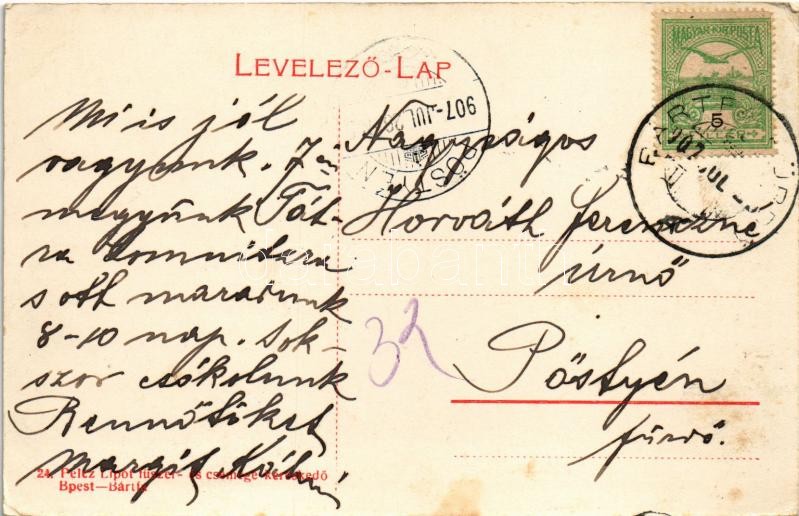 LEVELEZŐ-LAP
MAGYAR KIR. POSTA
5
907 JUL
PÖSTYÉN
Mi is jól
vagyunk. 7én
megyünk Tát-
ra Lomniczra
s ott maradunk
8-10 nap. Sok-
szor csókolunk
Bennőtöket
Margit
Nagyságos
Horváth Ferenczné
úrnő
Pöstyén
fürdő.
32
24. Pelcz Lipót fűszer- és csemege kereskedő
Bpest—Bártfa